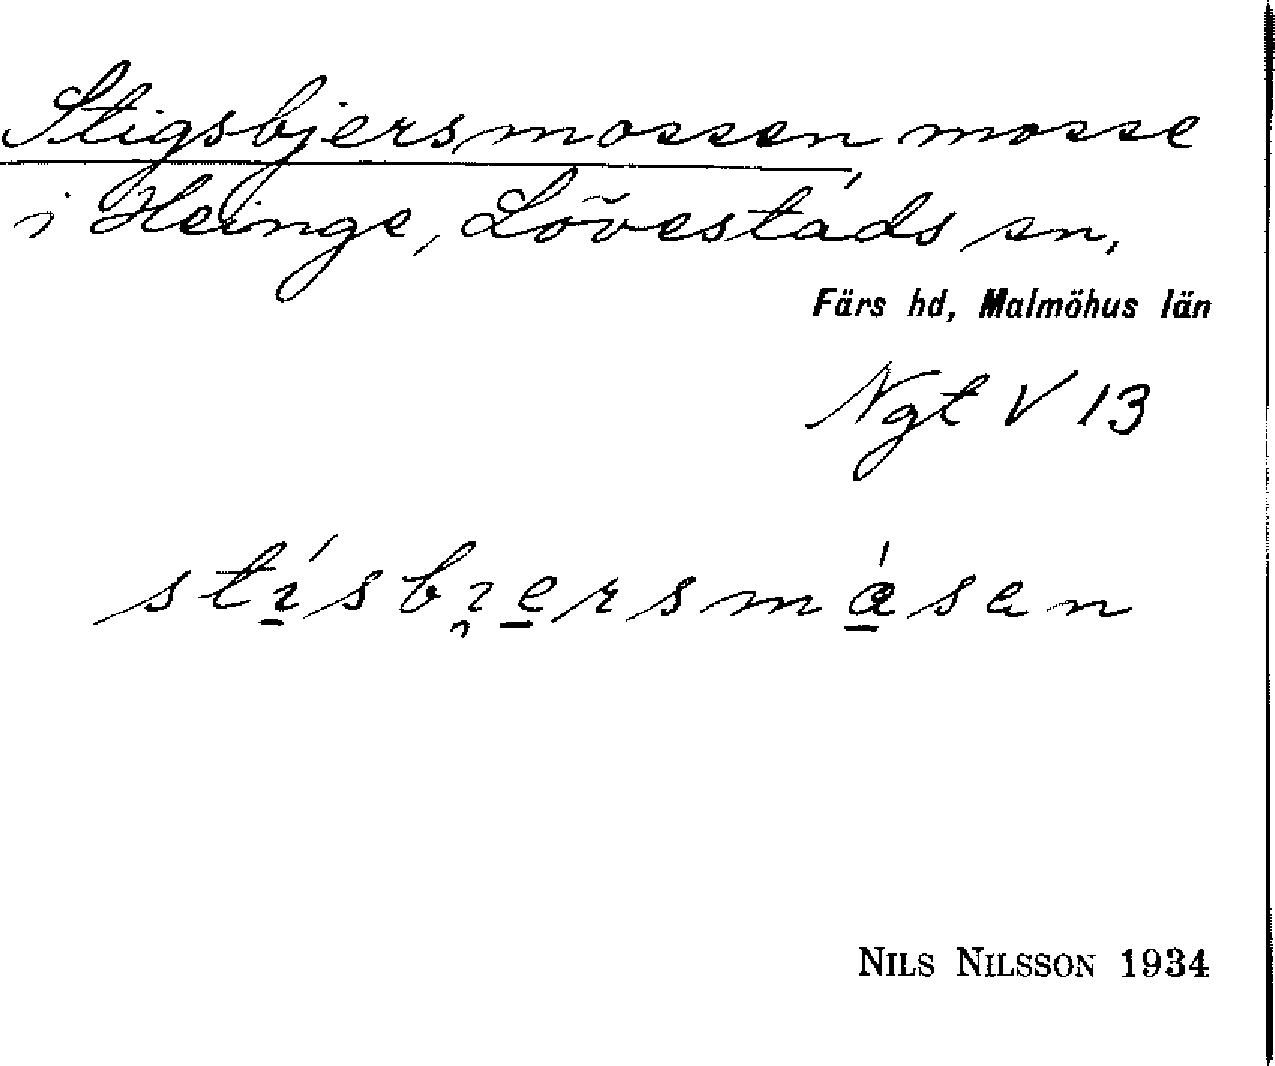 Stigsbjersmossen mosse
i Heinge, Lövestads sn,
Färs hd, Malmöhus län
Ngt V 13
stísbi̯ersmásen
NILS NILSSON 1934